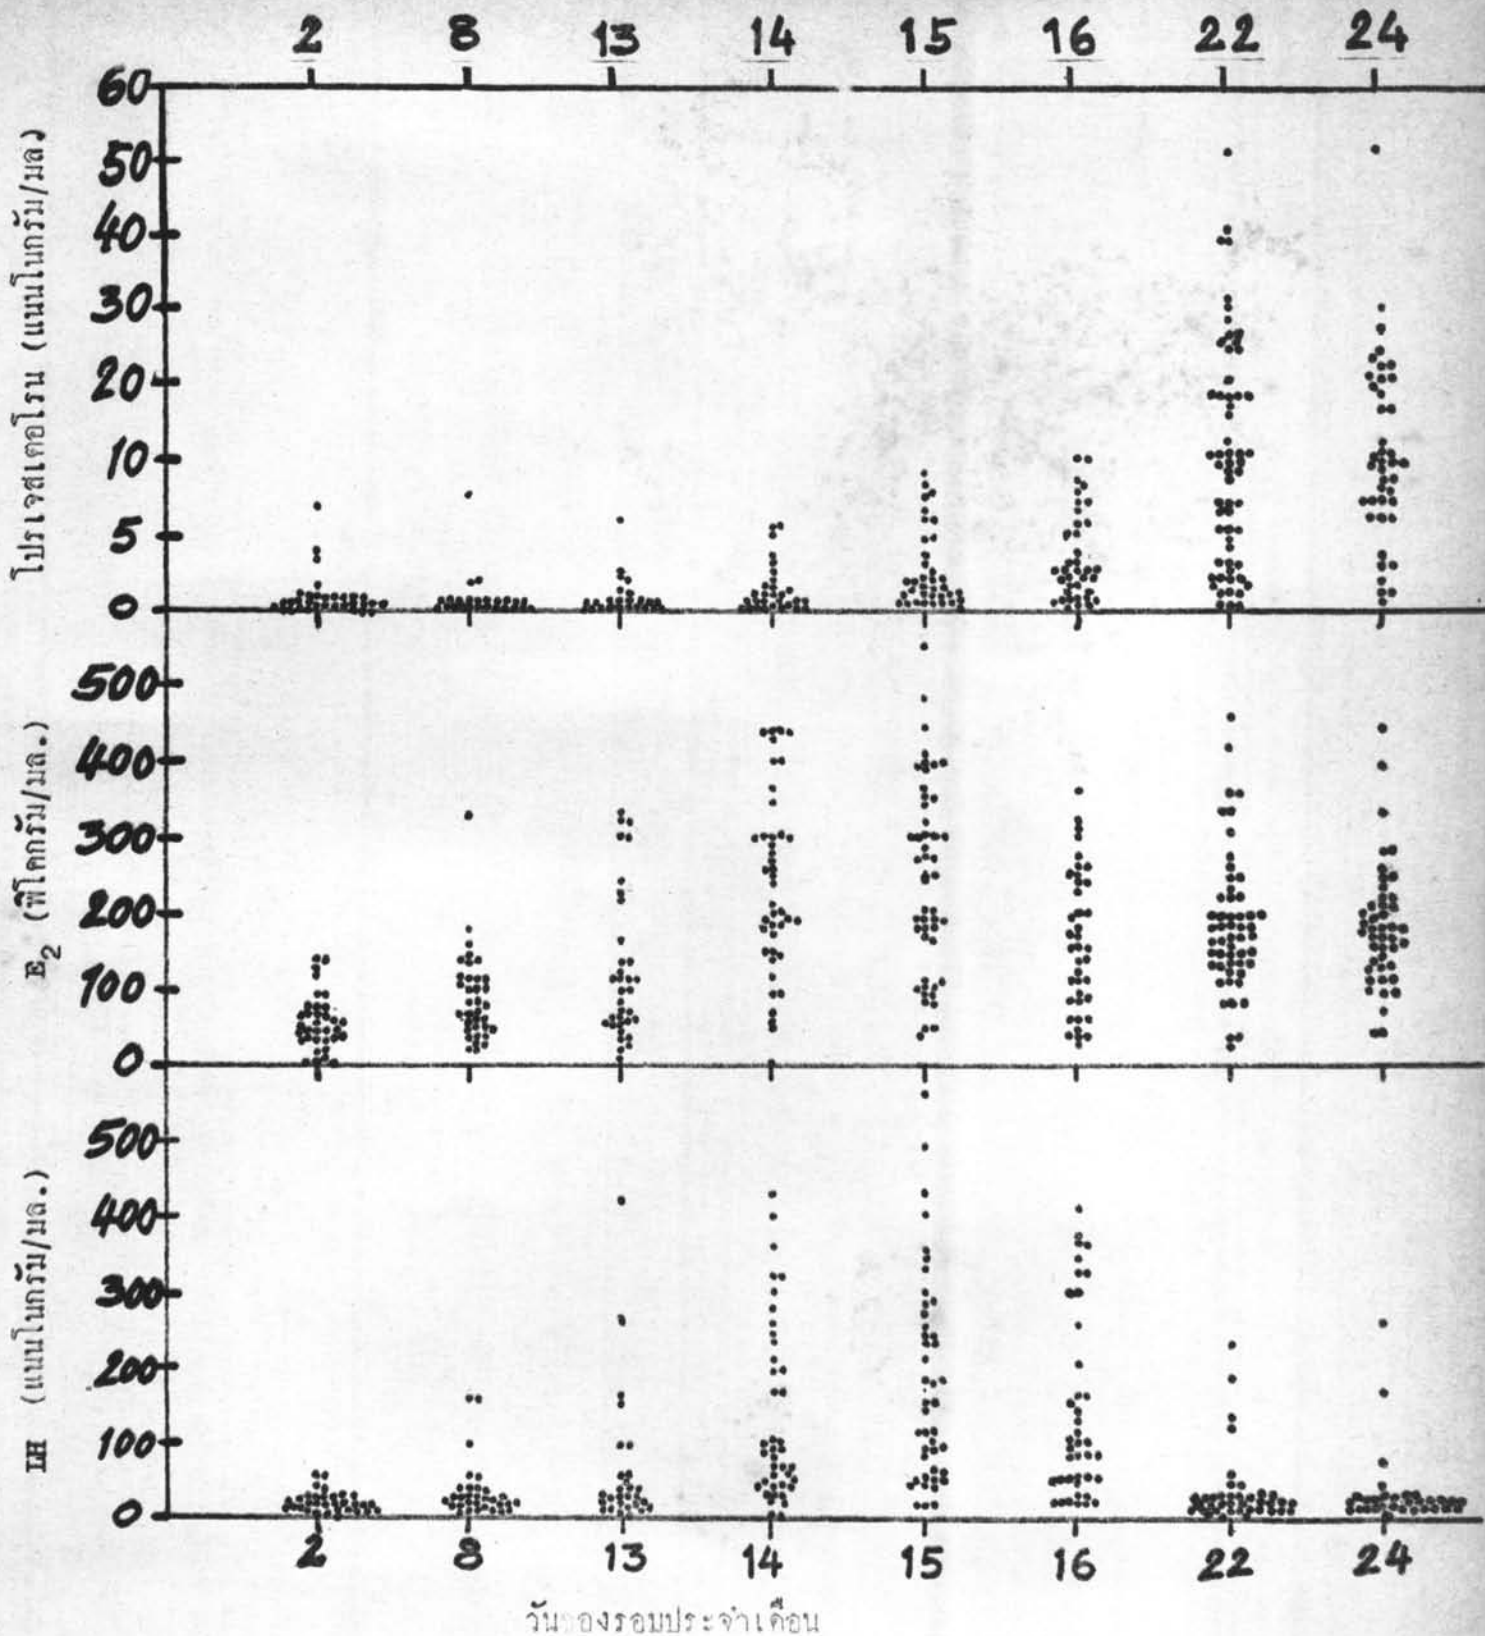 2 8 13 14 15 16 22 24
60
50
40
30
20
10
5
0
โปรเจสเตอโรน (แนนโนกรัม/มล)
500
400
300
200
100
0
E2 (พิโคกรัม/มล.)
500
400
300
200
100
0
LH (แนนโนกรัม/มล.)
2 8 13 14 15 16 22 24
วันของรอบประจำเดือน